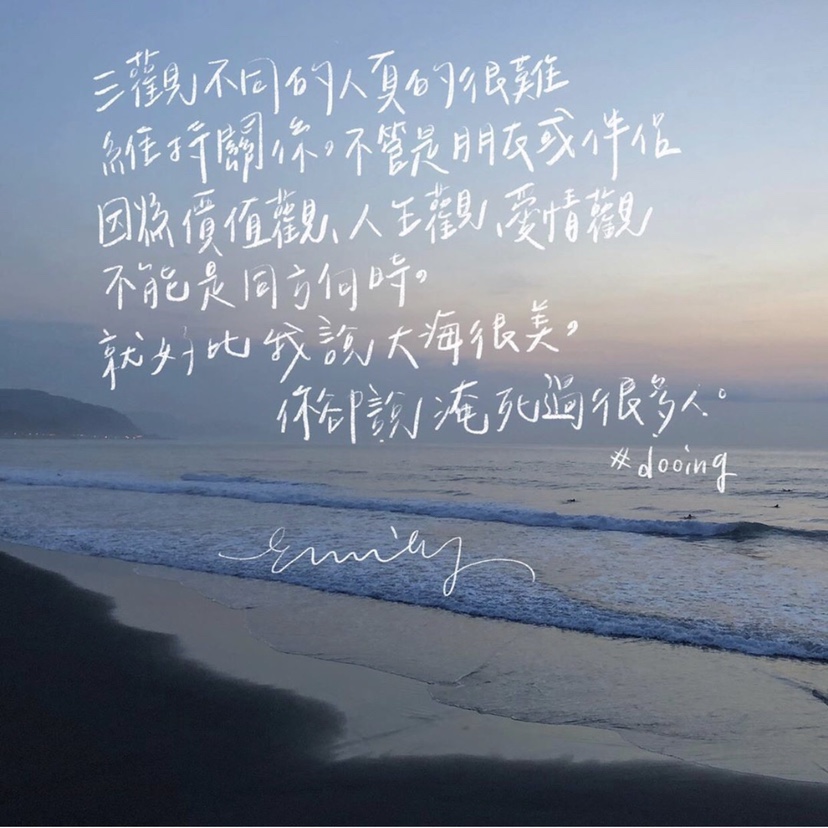 三觀不同的人真的很難
維持關係，不管是朋友或伴侶
因為價值觀、人生觀、愛情觀
不能是同方向時，
就好比我說大海很美，
你卻說淹死過很多人。
#dooing
Emily